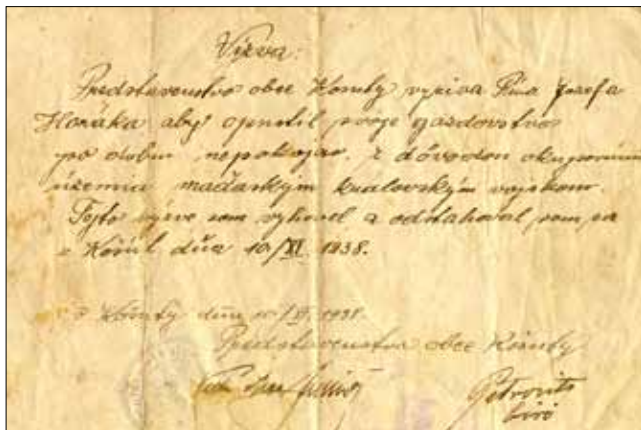 Výzva:
Predstavenstvo obce vyzíva Pána Jozefa
Horáka aby opustil svoje gazdovstvo
po dobu nepokojov, z dôvodov okupovania
územia maďarským kráľovským vojskom.
Tejto výzve som vyhovel a odsťahoval som sa
z dňa 10/XI. 1938.
dňa XI. 1938.
Predstavenstvo obce
Petrovits
biró